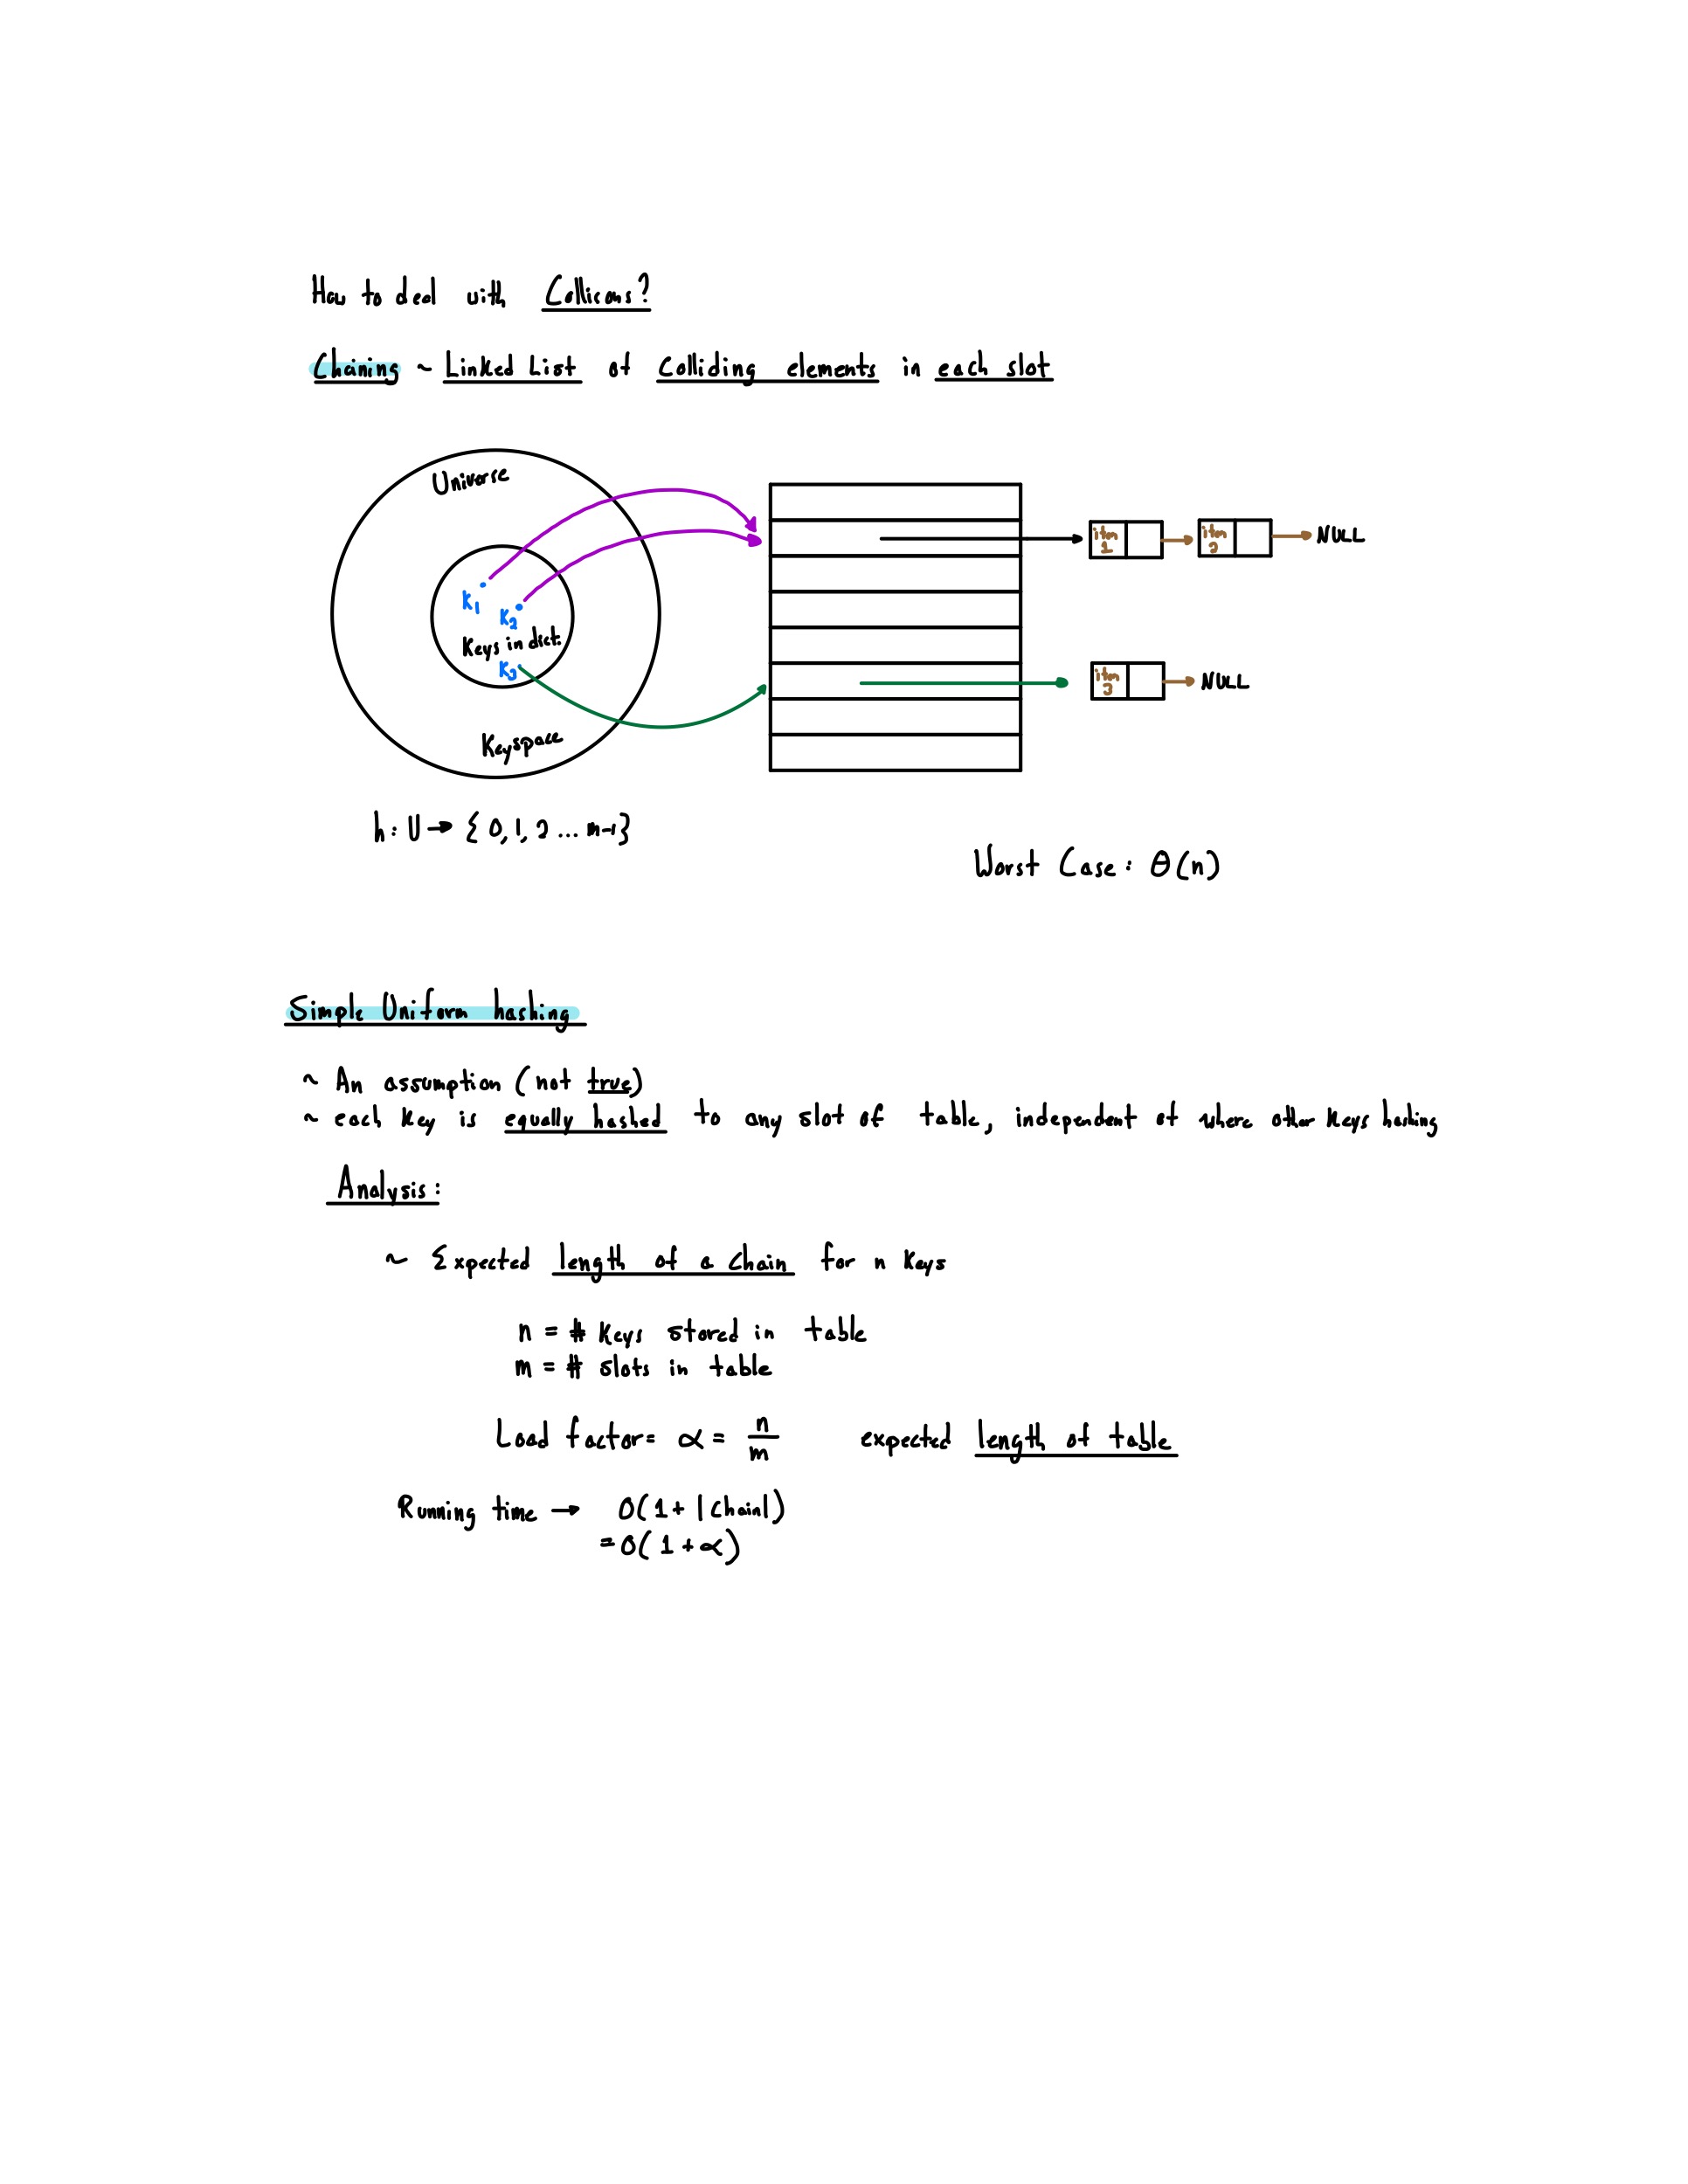 How to deal with Collisons?
Chaining ~ Linked List of Colliding elements in each slot
Universe
K1
K2
Keys in dict.
K3
Keyspace
item 1
item 2
NULL
item 3
NULL
h: U → { 0, 1, 2 ... m-1}
Worst Case: Θ(n)
Simple Uniform hashing
~ An assumption (not true)
~ each key is equally hashed to any slot of table, independent of where other keys hashing
Analysis:
~ Expected length of a chain for n keys
n = # keys stored in table
m = # slots in table
Load factor = α = n/m expected length of table
Running time → O(1 + |chain|)
= O(1 + α)